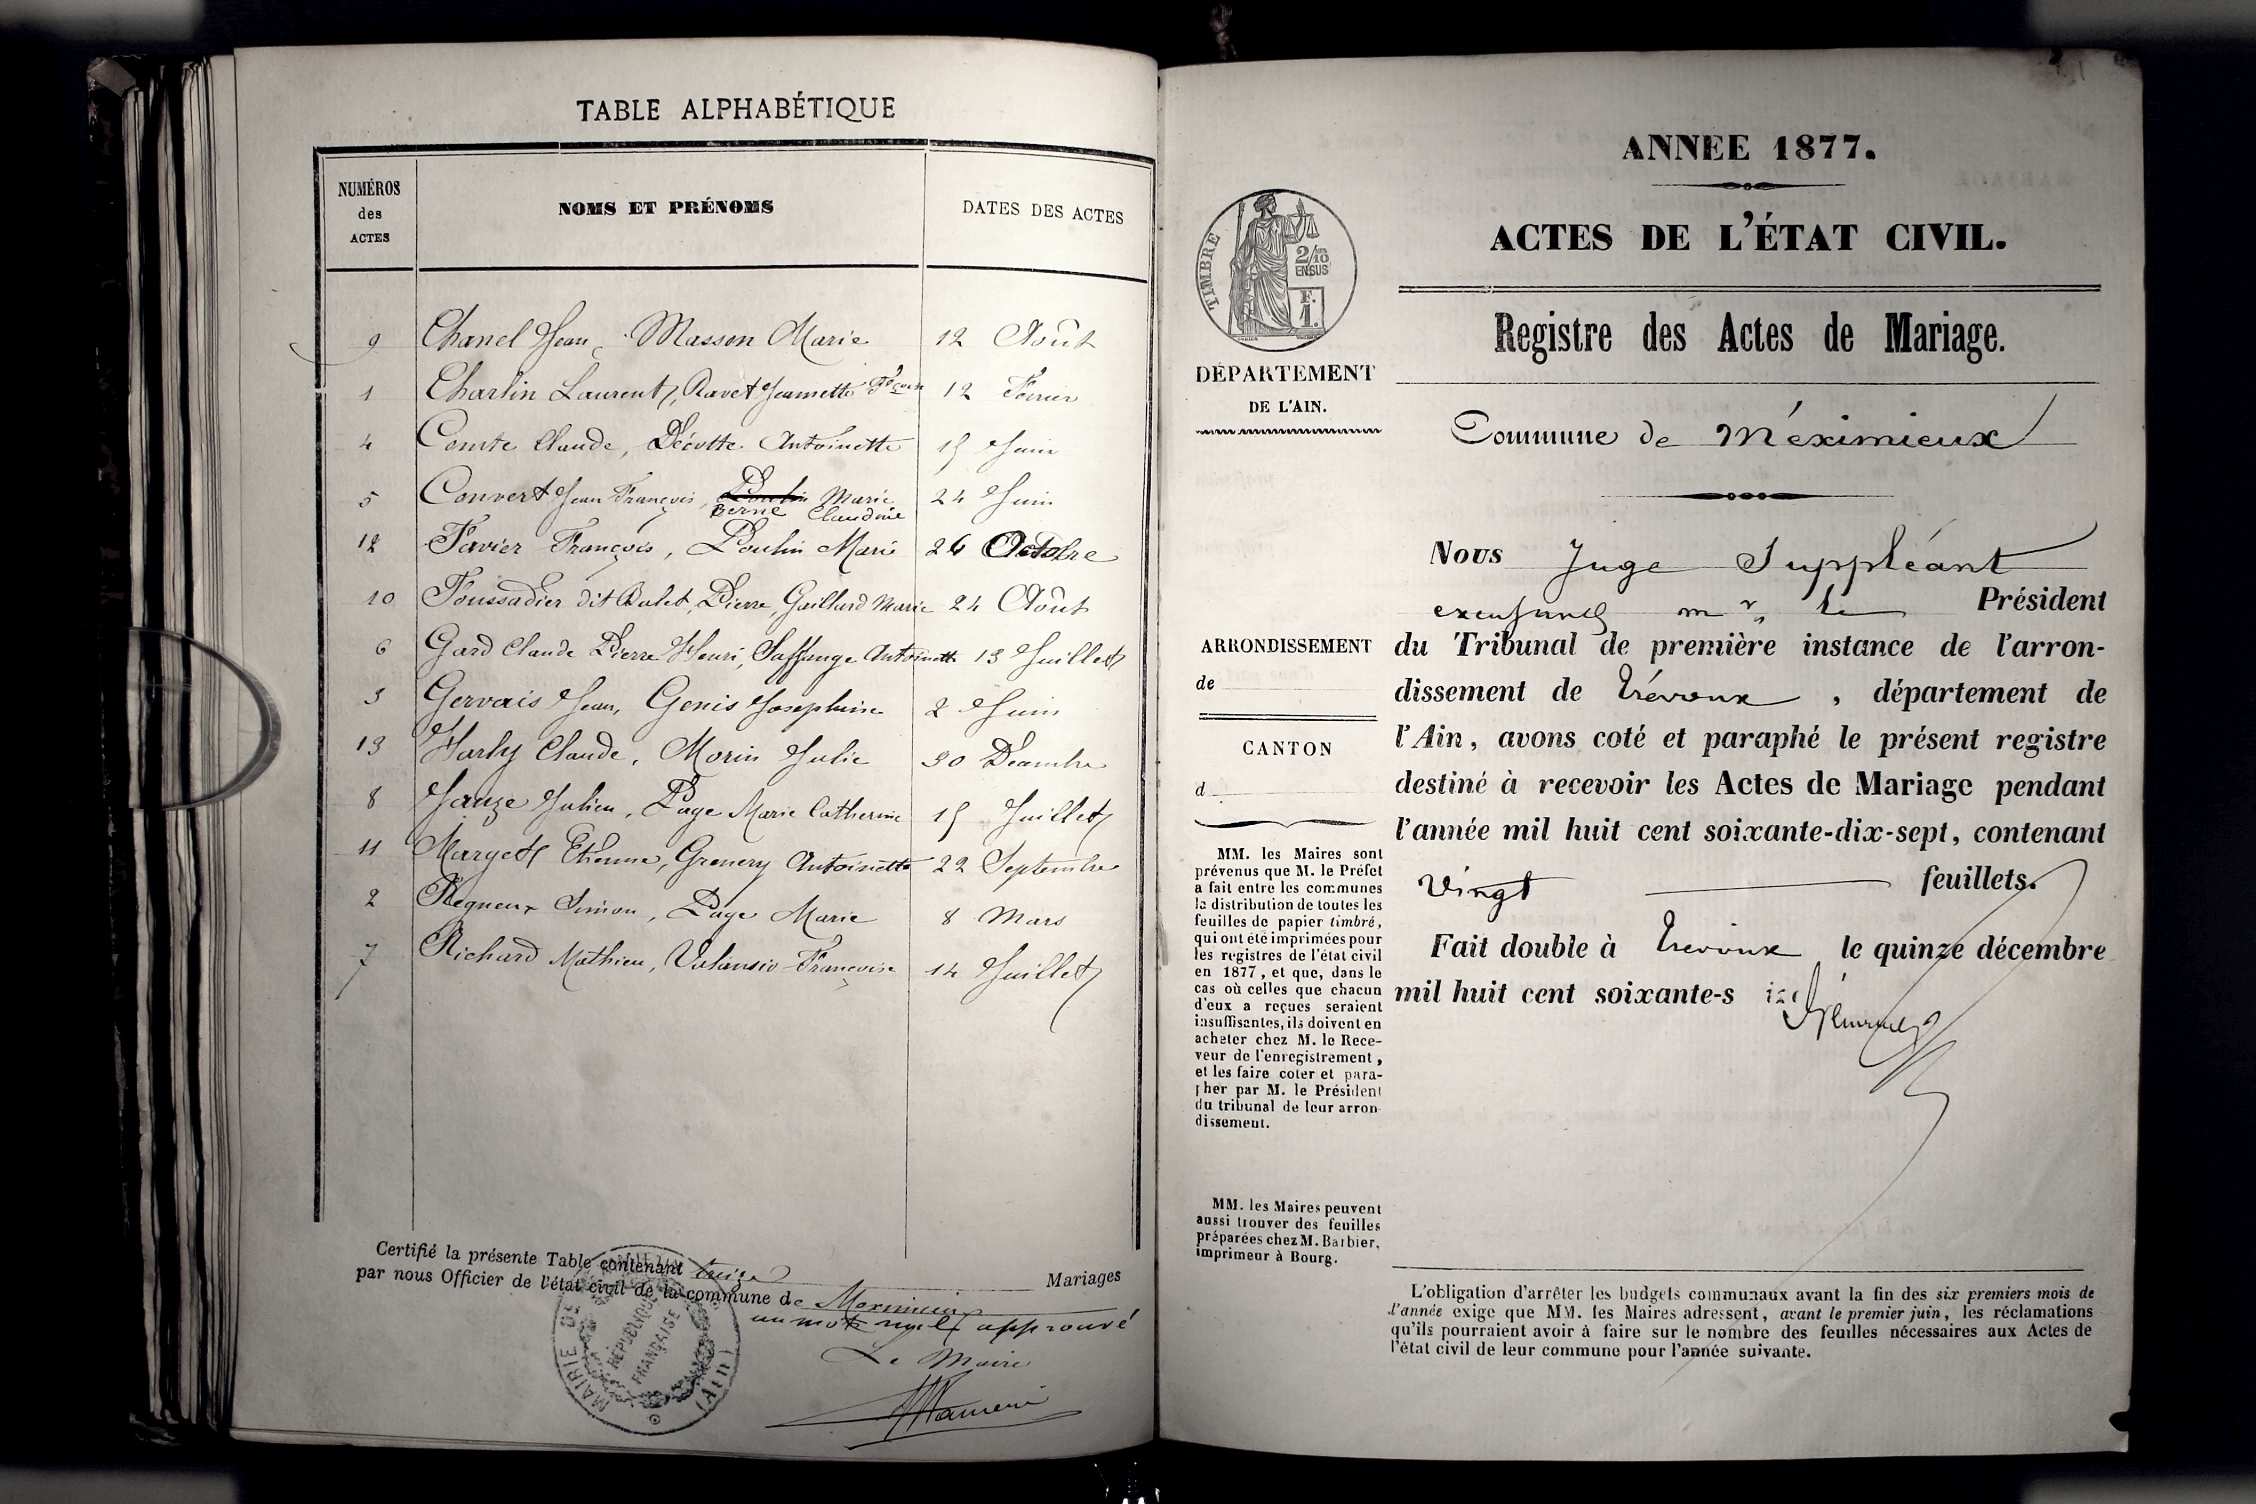 TABLE ALPHABÉTIQUE
NUMÉROS des ACTES NOMS ET PRÉNOMS DATES DES ACTES
9 Chanel Jean, Masson Marie 12 Août
1 Charlin Laurent, Ravet Jeannette 12 Février
4 Comte Claude, Décotte Antoinette 15 Juin
5 Convert Jean François, Poulin Marie 24 Juin
Berne Claudine
12 Favier François, Poulin Marie 26 Octobre
10 Foussadier dit Balet, Pierre, Gaillard Marie 24 Août
6 Gard Claude Pierre Henri, Saffange Antoinette 13 Juillet
3 Gervais Jean, Genis Josephine 2 Juin
13 Harly Claude, Morin Julie 30 Décembre
8 Janze Julien, Page Marie Catherine 15 Juillet
11 Marget Etienne, Grenery Antoinette 22 Septembre
2 Regneux Simon, Page Marie 8 Mars
7 Richard Mathieu, Valansio Françoise 14 Juillet
Certifié la présente Table contenant treize Mariages
par nous Officier de l'état civil de la commune de Meximieux
un mot nul approuvé
Le Maire
MAIRIE DE
RÉPUBLIQUE
FRANÇAISE
(AIN)
ANNEE 1877.
ACTES DE L'ÉTAT CIVIL.
Registre des Actes de Mariage.
Commune de Méximieux
TIMBRE
2/10
EN SUS
F.
1.
DÉPARTEMENT
DE L'AIN.
ARRONDISSEMENT
de
CANTON
d
MM. les Maires sont
prévenus que M. le Préfet
a fait entre les communes
la distribution de toutes les
feuilles de papier timbré,
qui ont été imprimées pour
les registres de l'état civil
en 1877, et que, dans le
cas où celles que chacun
d'eux a reçues seraient
insuffisantes, ils doivent en
acheter chez M. le Rece-
veur de l'enregistrement,
et les faire coter et para-
pher par M. le Président
du tribunal de leur arron-
dissement.
MM. les Maires peuvent
aussi trouver des feuilles
préparées chez M. Barbier,
imprimeur à Bourg.
Nous Juge Suppléant
mr le Président
du Tribunal de première instance de l'arron-
dissement de Trévoux, département de
l'Ain, avons coté et paraphé le présent registre
destiné à recevoir les Actes de Mariage pendant
l'année mil huit cent soixante-dix-sept, contenant
Vingt feuillets.
Fait double à Trévoux le quinze décembre
mil huit cent soixante-s
L'obligation d'arrêter les budgets communaux avant la fin des six premiers mois de
l'année exige que MM. les Maires adressent, avant le premier juin, les réclamations
qu'ils pourraient avoir à faire sur le nombre des feuilles nécessaires aux Actes de
l'état civil de leur commune pour l'année suivante.